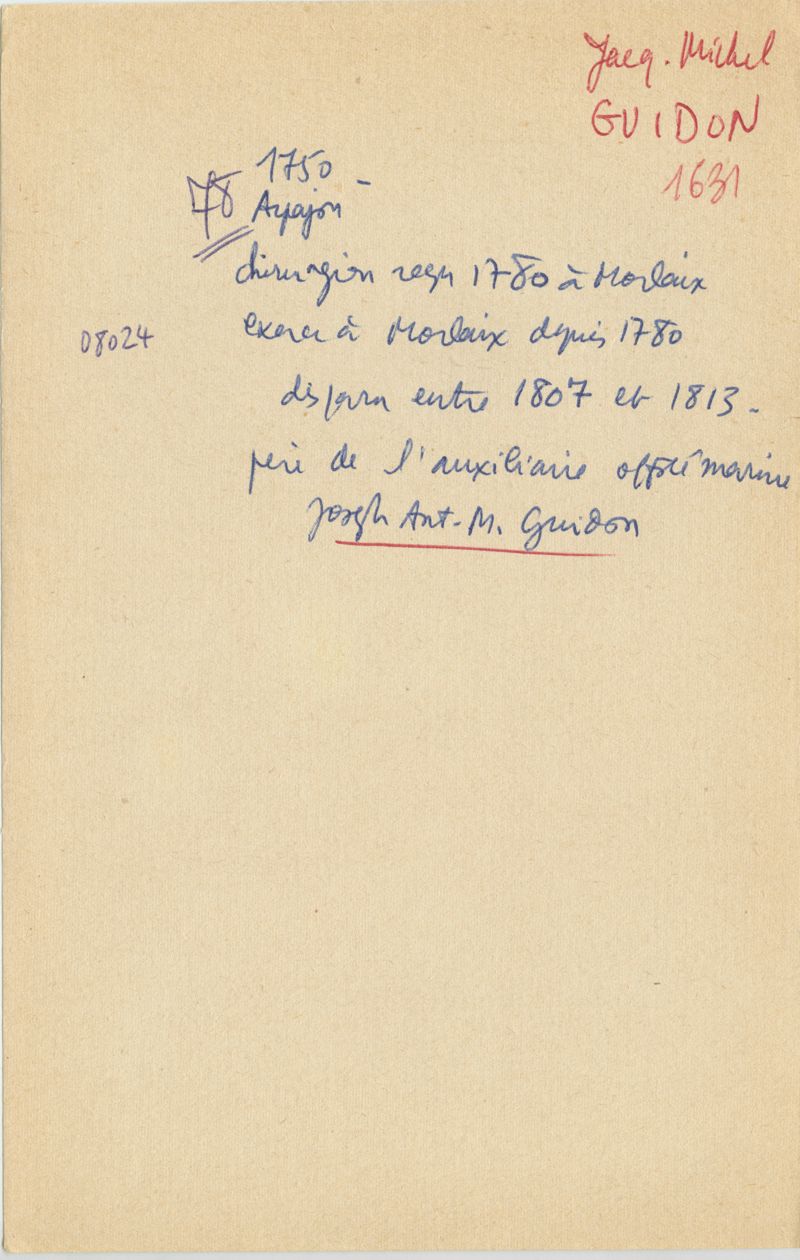 Jacq. Michel
GUIDON
1631
1750 -
78 Arpajon
chirurgien reçu 1780 à Morlaix
08024 exerce à Morlaix depuis 1780
disparu entre 1807 et 1813 -
père de l'auxiliaire marine
Joseph Ant. M. Guidon